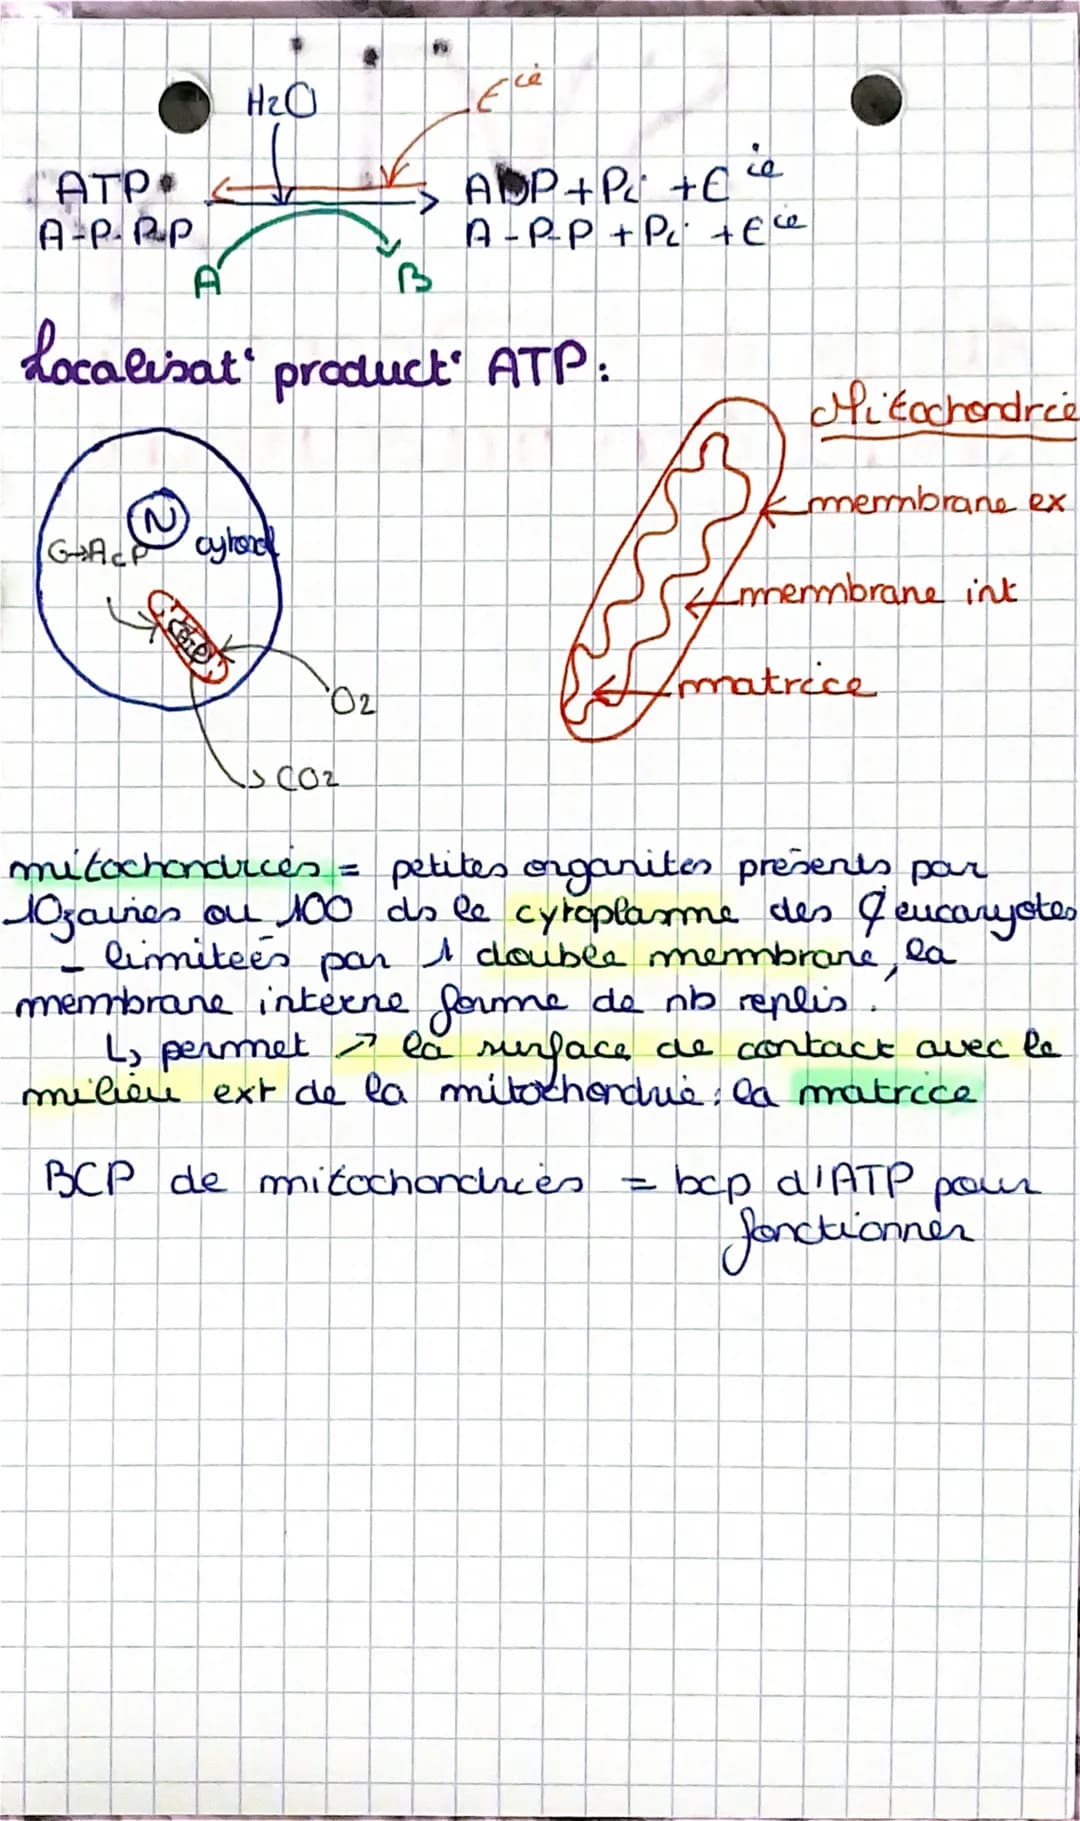 H2O
E cié
ATP
ADP + Pi + E ie
A-P-P-P
A-P-P + Pi + E cie
A
B
Localisat° product° ATP :
Mitochondrie
membrane ex
N
G→AcP
cytosol
membrane int
matrice
O2
CO2
mitochondries = petites organites présents par
10zaines ou 100 ds le cytoplasme des ₵ eucaryotes
- limitées par 1 double membrane, la
membrane interne forme de nb replis.
↳ permet ↗ la surface de contact avec le
milieu ext de la mitochondrie : la matrice
BCP de mitochondries = bcp d'ATP pour
fonctionner